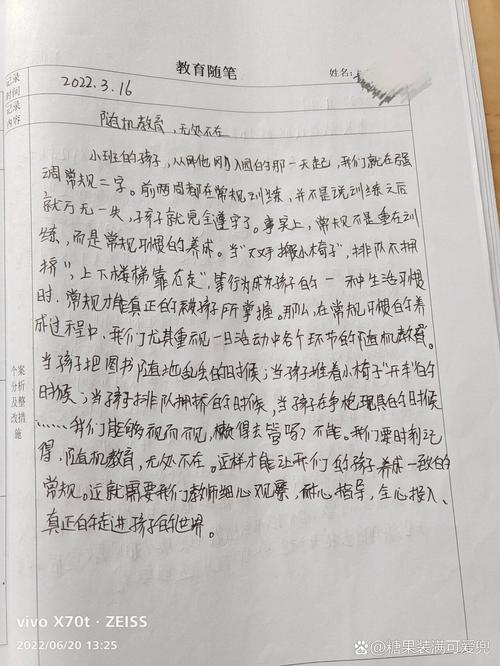 教育随笔
姓名:
记录
时间
2022.3.16
记录
内容
随机教育,无处不在
小班的孩子,从他刚入园的那一天起,我们就在强
调常规二字。前两周都在常规训练,并不是说训练之后
就万无一失,孩子就完全遵守了。事实上,常规不是重在训
练,而是常规习惯的养成。当“双手搬小椅子”,排队不拥
挤”,上下楼梯靠右走”,等行为成为孩子的一种生活习惯
时,常规才能真正的被孩子所掌握。那么,在常规习惯的养
成过程中,我们尤其重视一日活动中各个环节的随机教育。
当孩子把图书随地乱丢的时候;当孩子推着小椅子“开车”的
时候;当孩子排队拥挤的时候,当孩子在争抢玩具的时候
……我们能够视而不视,懒得去管吗?不能。我们要时刻记
得,随机教育,无处不在。这样才能让我们的孩子养成一致的
常规。这就需要我们教师细心观察,耐心指导,全心投入、
真正的走进孩子的世界。
个案
分析
及整
改措
施
vivo X70t · ZEISS
2022/06/20 13:25
@糖果装满可爱兜